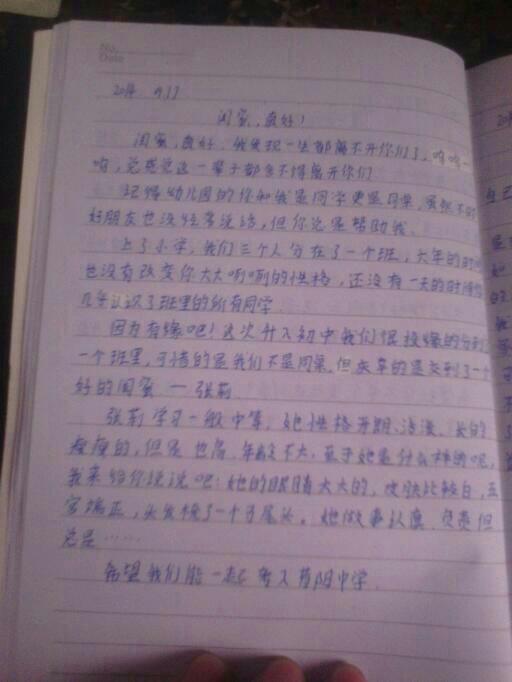 No.
Date
闺蜜,真好!
闺蜜,真好,我发现一生都离不开你们了,哈哈一
哈,总感觉这一辈子都舍不得离开你们
记得幼儿园的你和我是同学更是同桌,虽然不的
好朋友也没经常说话,但你总是帮助我。
上了小学,我们三个人分在了一个班,六年的时间
也没有改变你大大咧咧的性格,还没有一天的时间你
几乎认识了班里的所有同学
因为有缘吧!这次升入初中我们很投缘的分到
一个班里,可惜的是我们不是同桌,但庆幸的是交到了一个
好的闺蜜 — 张莉
张莉学习一般中等,她性格开朗、活泼、长的
瘦瘦的,但是 高,年龄不大,至于她是什么样的呢,
我来给你说说吧:她的眼睛大大的,皮肤比较白,五
官端正,头发梳了一个马尾头。她做事认真、负责但
总是……
希望我们能一起考入 阳中学